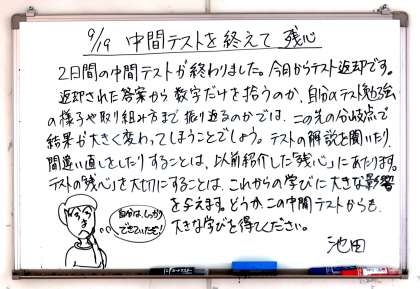 9/19 中間テストを終えて 残心
2日間の中間テストが終わりました。今日からテスト返却です。
返却された答案から数字だけを拾うのか、自分のテスト勉強
の様子や取り組み方まで振り返るのかでは、この先の分岐点で
結果が大きく変わってしまうことでしょう。テストの解説を聞いたり、
間違い直しをしたりすることは、以前紹介した「残心」にあたります。
テストの「残心」を大切にすることは、これからの学びに大きな影響
を与えます。どうか、この中間テストからも、
大きな学びを得てください。
池田
自分は、しっかり
できていたも!